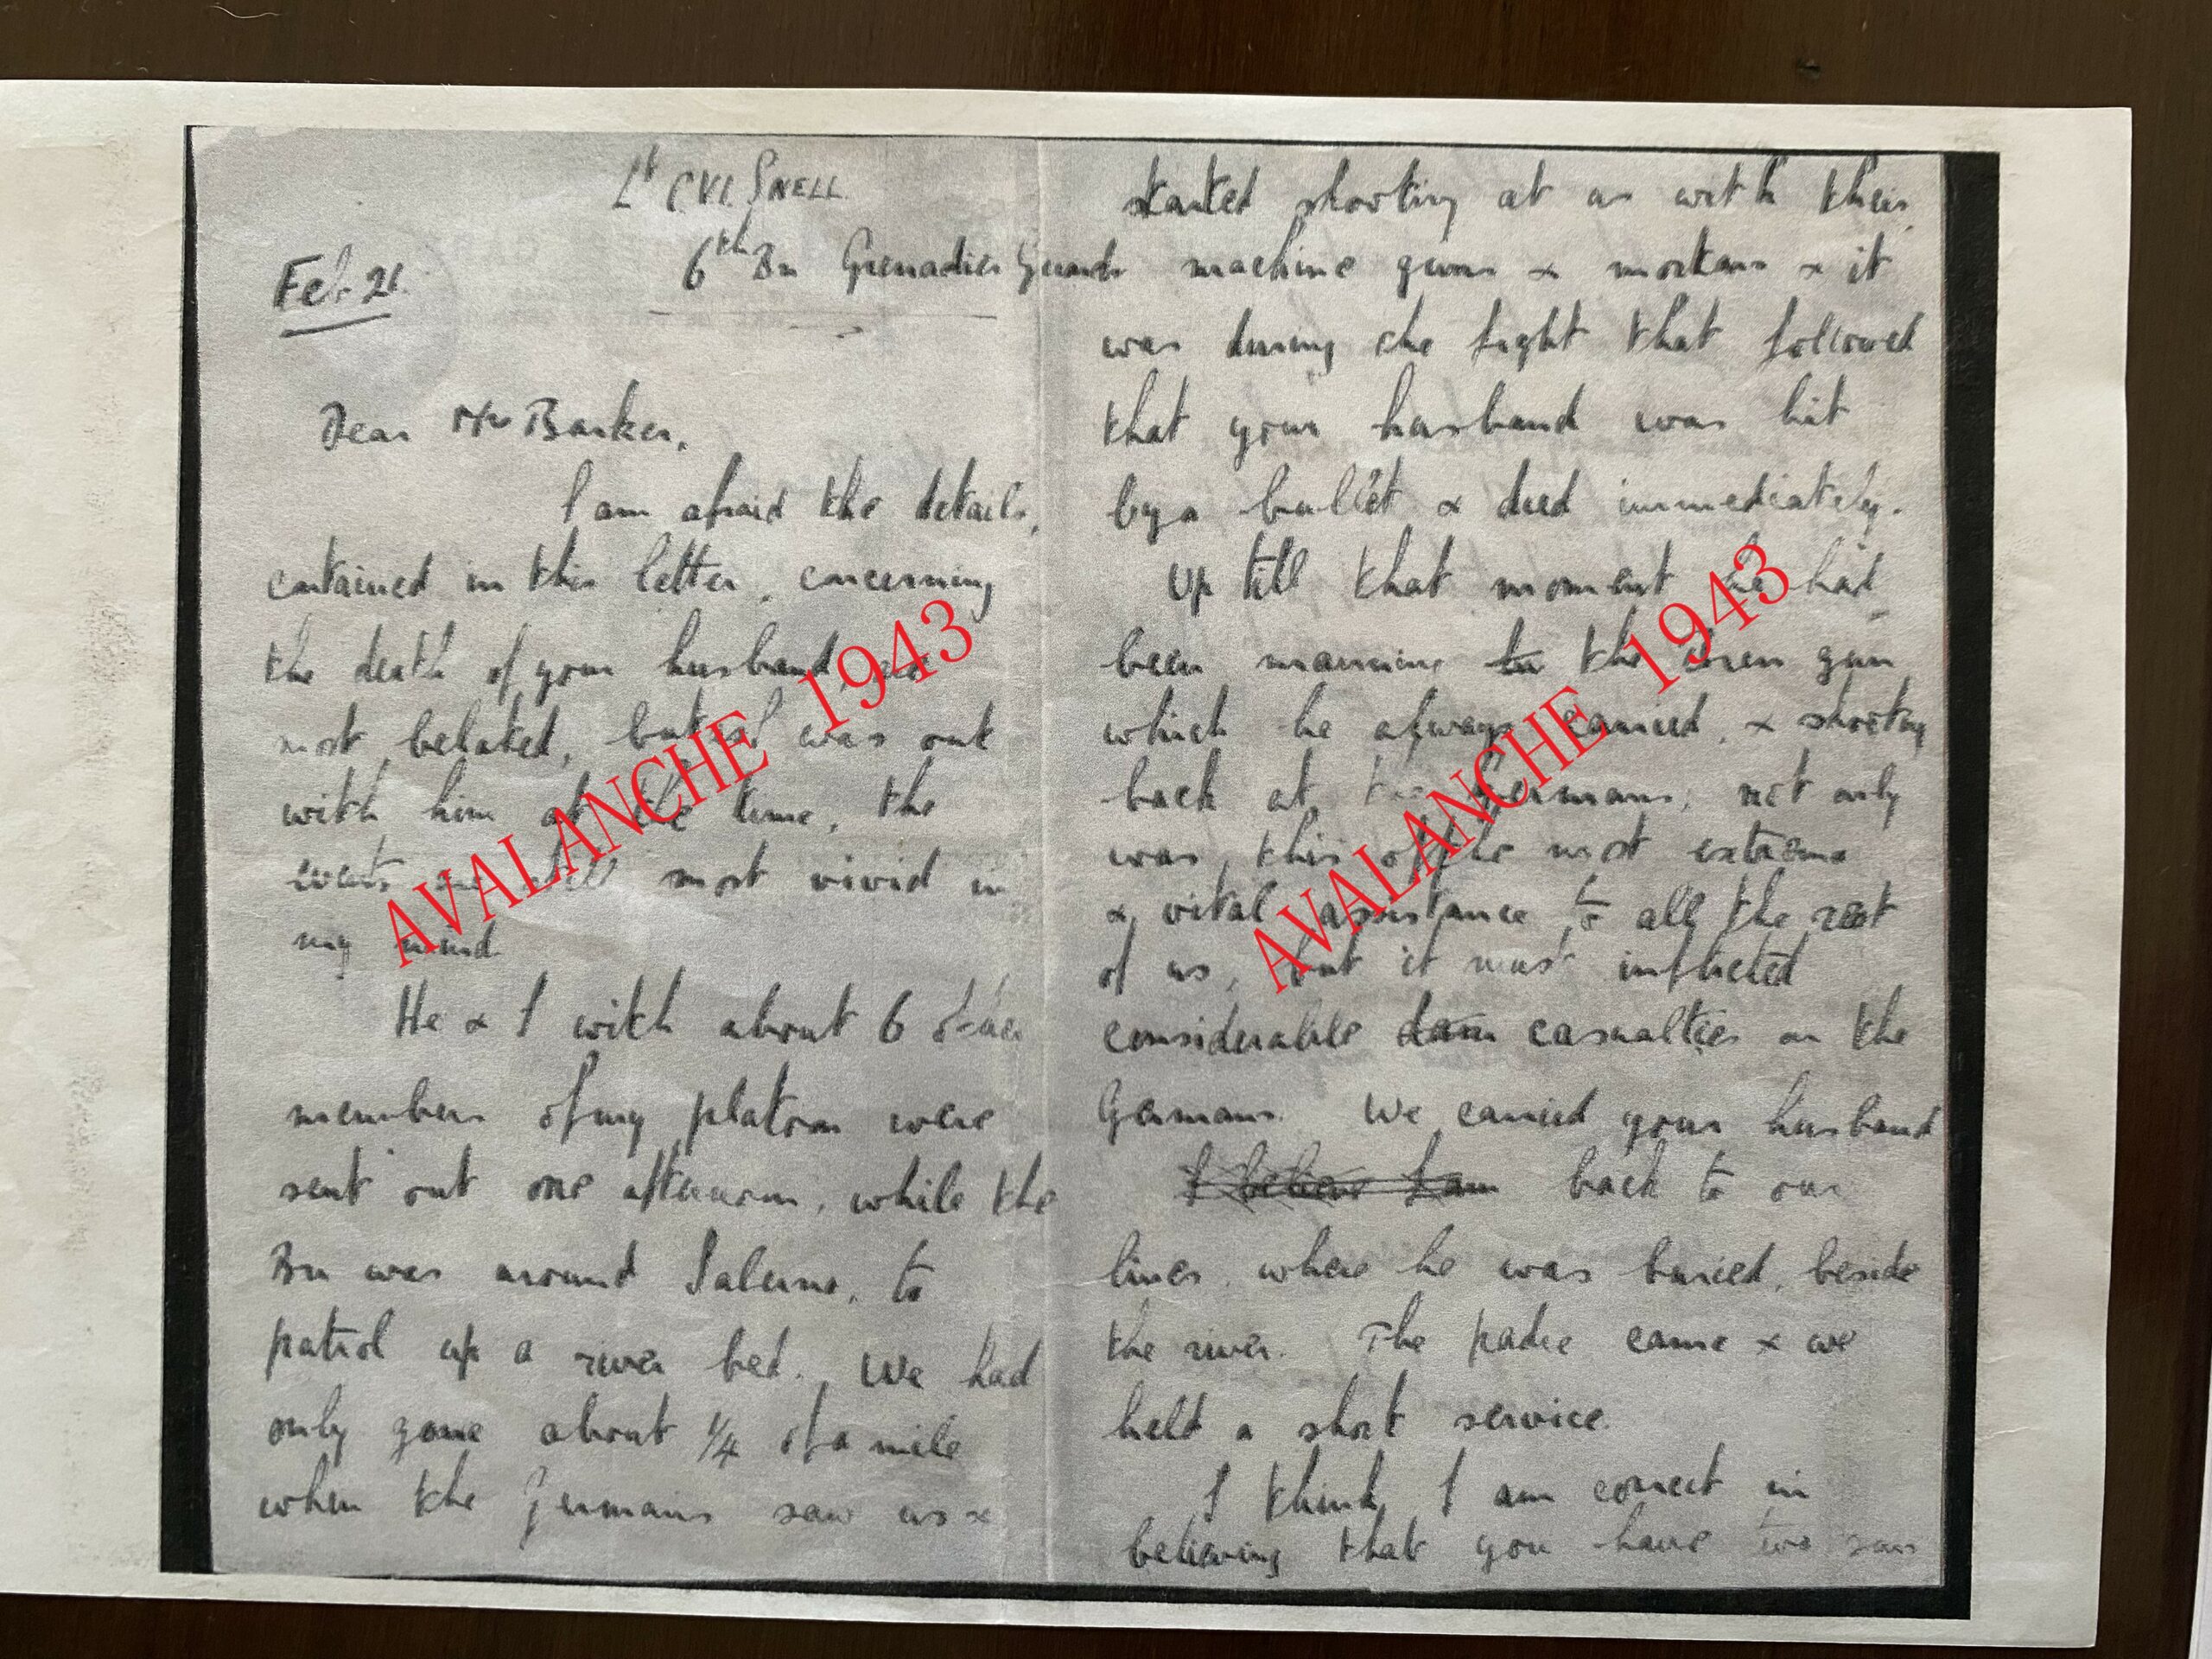 Lt C.V.I. SNELL
6th Bn Grenadier Guards
Feb. 21.
Dear Mrs Barker,
I am afraid the details,
contained in this letter, concerning
the death of your husband, are
most belated, but as I was out
with him at the time, the
events are still most vivid in
my mind.
He & I with about 6 other
members of my platoon were
sent out one afternoon, while the
Bn was around Salerno, to
patrol up a river bed. We had
only gone about 1/4 of a mile
when the Germans saw us &
started shooting at us with their
machine guns & mortars & it
was during the fight that followed
that your husband was hit
by a bullet & died immediately.
Up till that moment he had
been manning the Bren gun
which he always carried, & shooting
back at the Germans, not only
was this of the most extreme
& vital assistance to all the rest
of us, but it must inflicted
considerable dam casualties on the
Germans. We carried your husband
I believe I am back to our
lines, where he was buried, beside
the river. The padre came & we
held a short service.
I think I am correct in
believing that you have two sons
AVALANCHE 1943
AVALANCHE 1943